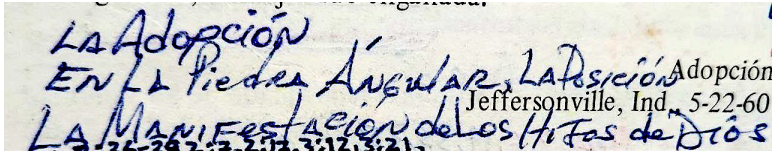 LA Adopción
EN LA Piedra ÁNGULAR, LA Posición Adopción
Jeffersonville, Ind., 5-22-60
LA MANIFestACIÓN de Los HIJos de DIOS